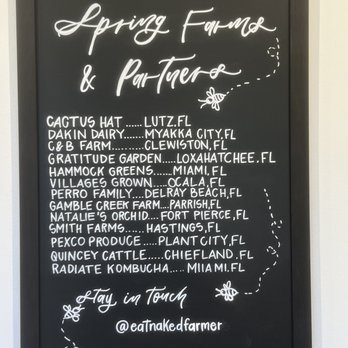 Spring Farms
& Partners
CACTUS HAT ..... LUTZ, FL
DAKIN DAIRY...... MYAKKA CITY, FL
C&B FARM.......... CLEWISTON, FL
GRATITUDE GARDEN.....LOXAHATCHEE, FL
HAMMOCK GREENS...... MIAMI, FL
VILLAGES GROWN..... OCALA, FL
PERRO FAMILY....DELRAY BEACH, FL
GAMBLE CREEK FARM....PARRISH, FL
NATALIE'S ORCHID.... FORT PIERCE, FL
SMITH FARMS...... HASTINGS, FL
PEXCO PRODUCE..... PLANT CITY, FL
QUINCEY CATTLE.....CHIEFLAND, FL
RADIATE KOMBUCHA.... MIIAMI, FL
Stay in touch
@eatnakedfarmer